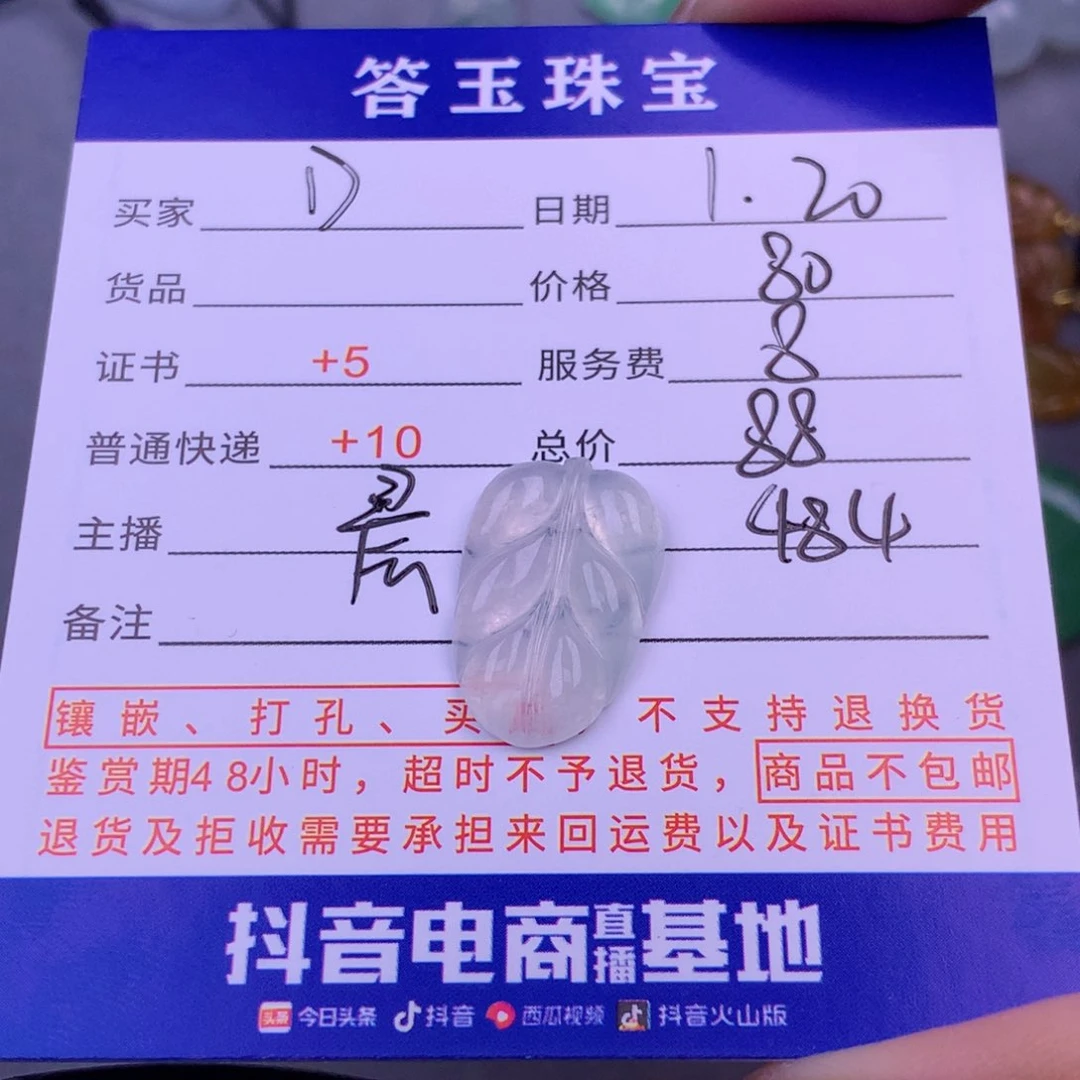 答玉珠宝
买家 D 日期 1.20
货品 价格 80
证书 +5 服务费 8
普通快递 +10 总价 88
主播 484
备注
镶嵌、打孔、买 不支持退换货
鉴赏期48小时，超时不予退货，商品不包邮
退货及拒收需要承担来回运费以及证书费用
抖音电商直播基地
头条 今日头条 抖音 西瓜视频 抖音火山版